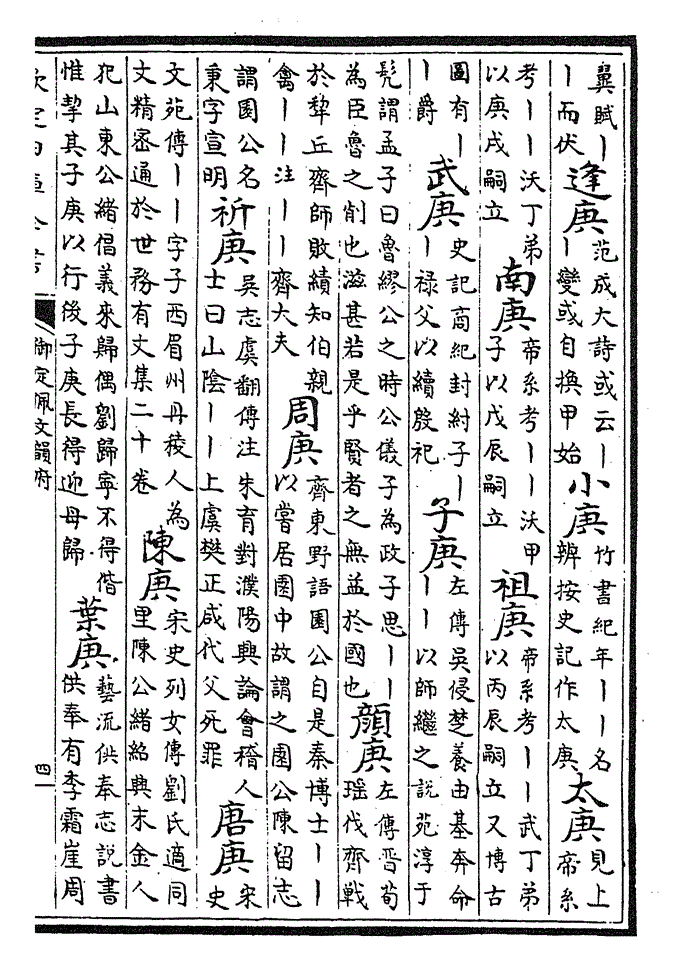 翼賦丨丨而伏逢庚范成大詩或云丨丨變或自換甲始小庚竹書紀年丨丨名辨按史記作太庚太庚見上帝系
考丨丨沃丁弟以庚戌嗣立南庚帝系考丨丨沃甲子以戊辰嗣立祖庚帝系考丨丨武丁弟以丙辰嗣立又博古
圖有丨丨爵武庚史記商紀封紂子丨丨禄父以續殷祀子庚左傳吳侵楚養由基奔命丨丨以師繼之說苑淳于
髠謂孟子曰魯繆公之時公儀子為政子思丨丨為臣魯之削也滋甚若是乎賢者之無益於國也顔庚左傳晉荀瑶伐齊戰
於犂丘齊師敗績知伯親禽丨丨注丨丨齊大夫周庚齊東野語園公自是秦博士丨丨以嘗居園中故謂之園公陳留志
謂園公名秉字宣明祈庚吳志虞翻傳注朱育對濮陽興論會稽人士曰山陰丨丨上虞樊正咸代父死罪唐庚宋史
文苑傳丨丨字子西眉州丹稜人為文精密通於世務有文集二十卷陳庚宋史列女傳劉氏適同里陳公緒紹興末金人
犯山東公緒倡義來歸偶劉歸寧不得偕惟挚其子庚以行後子庚長得迎母歸葉庚藝流供奉志說書供奉有李霜崖周
欽定四庫全書
御定佩文韻府
四